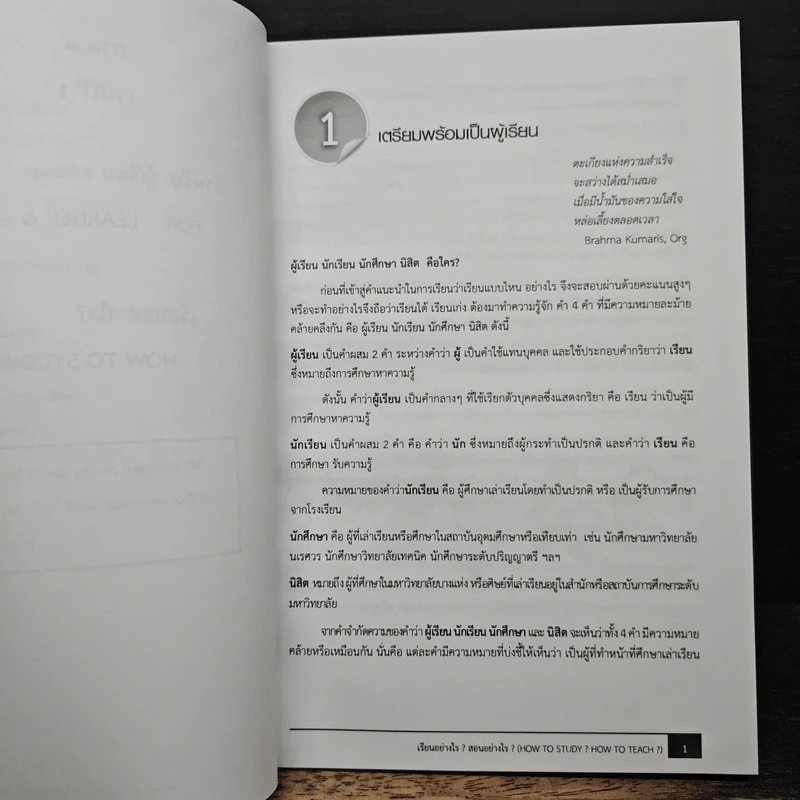 1
เตรียมพร้อมเป็นผู้เรียน
ตะเกียงแห่งความสำเร็จ
จะสว่างได้สม่ำเสมอ
เมื่อมีน้ำมันของความใส่ใจ
หล่อเลี้ยงตลอดเวลา
Brahma Kumaris, Org
ผู้เรียน นักเรียน นักศึกษา นิสิต คือใคร?
ก่อนที่เข้าสู่คำแนะนำในการเรียนว่าเรียนแบบไหน อย่างไร จึงจะสอบผ่านด้วยคะแนนสูงๆ
หรือจะทำอย่างไรจึงถือว่าเรียนได้ เรียนเก่ง ต้องมาทำความรู้จัก คำ 4 คำ ที่มีความหมายละม้าย
คล้ายคลึงกัน คือ ผู้เรียน นักเรียน นักศึกษา นิสิต ดังนี้
ผู้เรียน เป็นคำผสม 2 คำ ระหว่างคำว่า ผู้ เป็นคำใช้แทนบุคคล และใช้ประกอบคำกริยาว่า เรียน
ซึ่งหมายถึงการศึกษาหาความรู้
ดังนั้น คำว่าผู้เรียน เป็นคำกลางๆ ที่ใช้เรียกตัวบุคคลซึ่งแสดงกริยา คือ เรียน ว่าเป็นผู้มี
การศึกษาหาความรู้
นักเรียน เป็นคำผสม 2 คำ คือ คำว่า นัก ซึ่งหมายถึงผู้กระทำเป็นปรกติ และคำว่า เรียน คือ
การศึกษา รับความรู้
ความหมายของคำว่านักเรียน คือ ผู้ศึกษาเล่าเรียนโดยทำเป็นปรกติ หรือ เป็นผู้รับการศึกษา
จากโรงเรียน
นักศึกษา คือ ผู้ที่เล่าเรียนหรือศึกษาในสถาบันอุดมศึกษาหรือเทียบเท่า เช่น นักศึกษามหาวิทยาลัย
นเรศวร นักศึกษาวิทยาลัยเทคนิค นักศึกษาระดับปริญญาตรี ฯลฯ
นิสิต หมายถึง ผู้ที่ศึกษาในมหาวิทยาลัยบางแห่ง หรือศิษย์ที่เล่าเรียนอยู่ในสำนักหรือสถาบันการศึกษาระดับ
มหาวิทยาลัย
จากคำจำกัดความของคำว่า ผู้เรียน นักเรียน นักศึกษา และ นิสิต จะเห็นว่าทั้ง 4 คำ มีความหมาย
คล้ายหรือเหมือนกัน นั่นคือ แต่ละคำมีความหมายที่บ่งชี้ให้เห็นว่า เป็นผู้ที่ทำหน้าที่ศึกษาเล่าเรียน
เรียนอย่างไร ? สอนอย่างไร ? (HOW TO STUDY ? HOW TO TEACH ?) 1